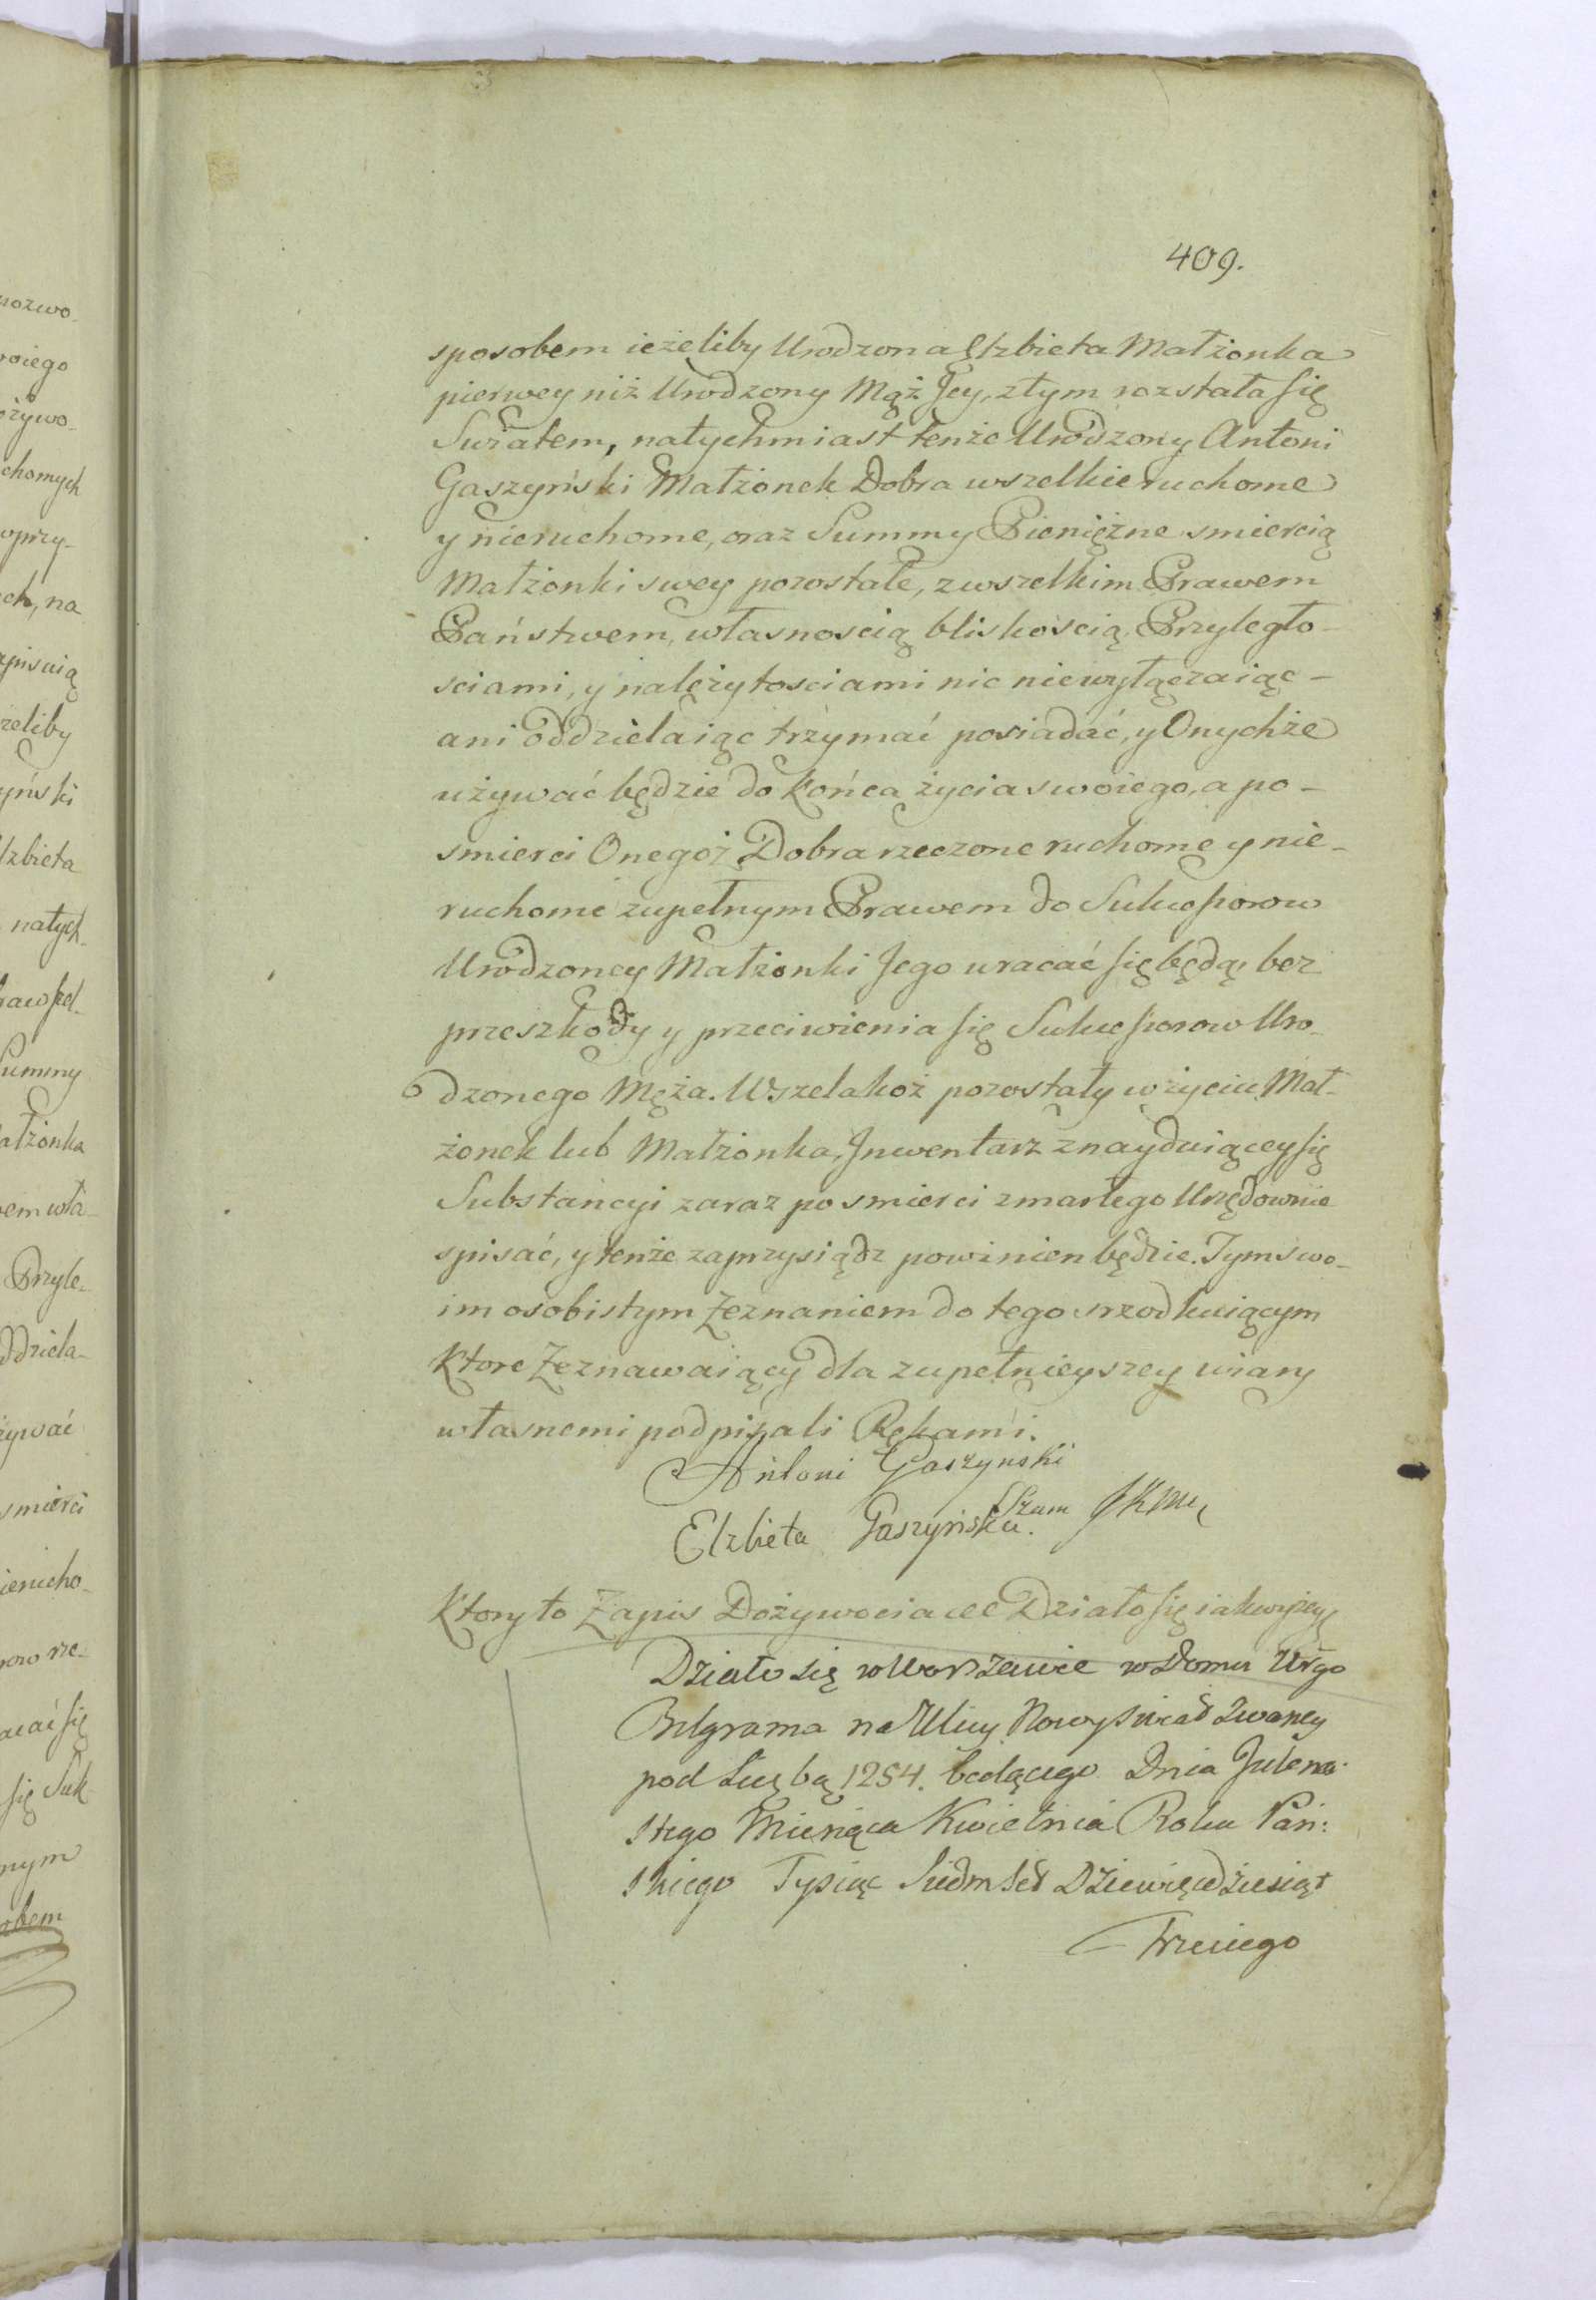 409.
sposobem ieżeliby Urodzona Elżbieta Małżonka
pierwey niż Urodzony Mąż Jey, z tym rozstała się
Swiatem, natychmiast tenże Urodzony Antoni
Gaszyński Małżonek Dobra wszelkie ruchome
y nieruchome, oraz Summy Pieniężne smiercią
Małżonki swey pozostałe, z wszelkim Prawem
Państwem, własnoscią bliskoscią, Przyległo-
sciami, y należytosciami nic niewyłączaiąc -
ani oddzielaiąc trzymać posiadać, y Onychże
używać będzie do końca życia swoiego, a po-
smierci Onegoż Dobra rzeczone ruchome y nie-
ruchome zupełnym Prawem do Sukcessorow
Urodzoney Małżonki Jego wracać się będą, bez
przeszkody y przeciwienia się Sukcessorow Uro-
dzonego Męża. Wszelakoż pozostały w życiu Mał-
żonek lub Małżonka, Inwentarz znayduiącey się
Substancyi zaraz po smierci zmarłego Urzędownie
spisać, y tenże zaprzysiądz powinien będzie. Tym swo-
im osobistym Zeznaniem do tego srzodkuiącym
Ktore Zeznawaiący dla zupełnieyszey wiary
własnemi podpisali Rękami.
Antoni Gaszynski
Szam JKMci
Elzbieta Gaszyńska.
Ktory to Zapis Dożywocia etc Działo się iak wyżey
Działo się w Warszawie w Domu Urgo
na Ulicy Nowy Swiat Zwaney
pod Liczbą 1254. będącego Dnia
stego Miesiąca Kwietnia Roku Pań:
skiego Tysiąc Siedmset Dziewięcdziesiąt
Trzeciego
nozwo-
woiego
ożywo-
chomych
wprzy-
ch, na
zeliby
yński
lżbieta
natych-
Summy
ałżonka
wem wła-
Przyle-
ddziela-
żywać
smierci
ienicho-
acać się
się Suk
nym